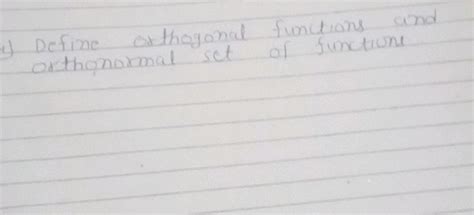 Define orthogonal functions and
orthonormal set of functions